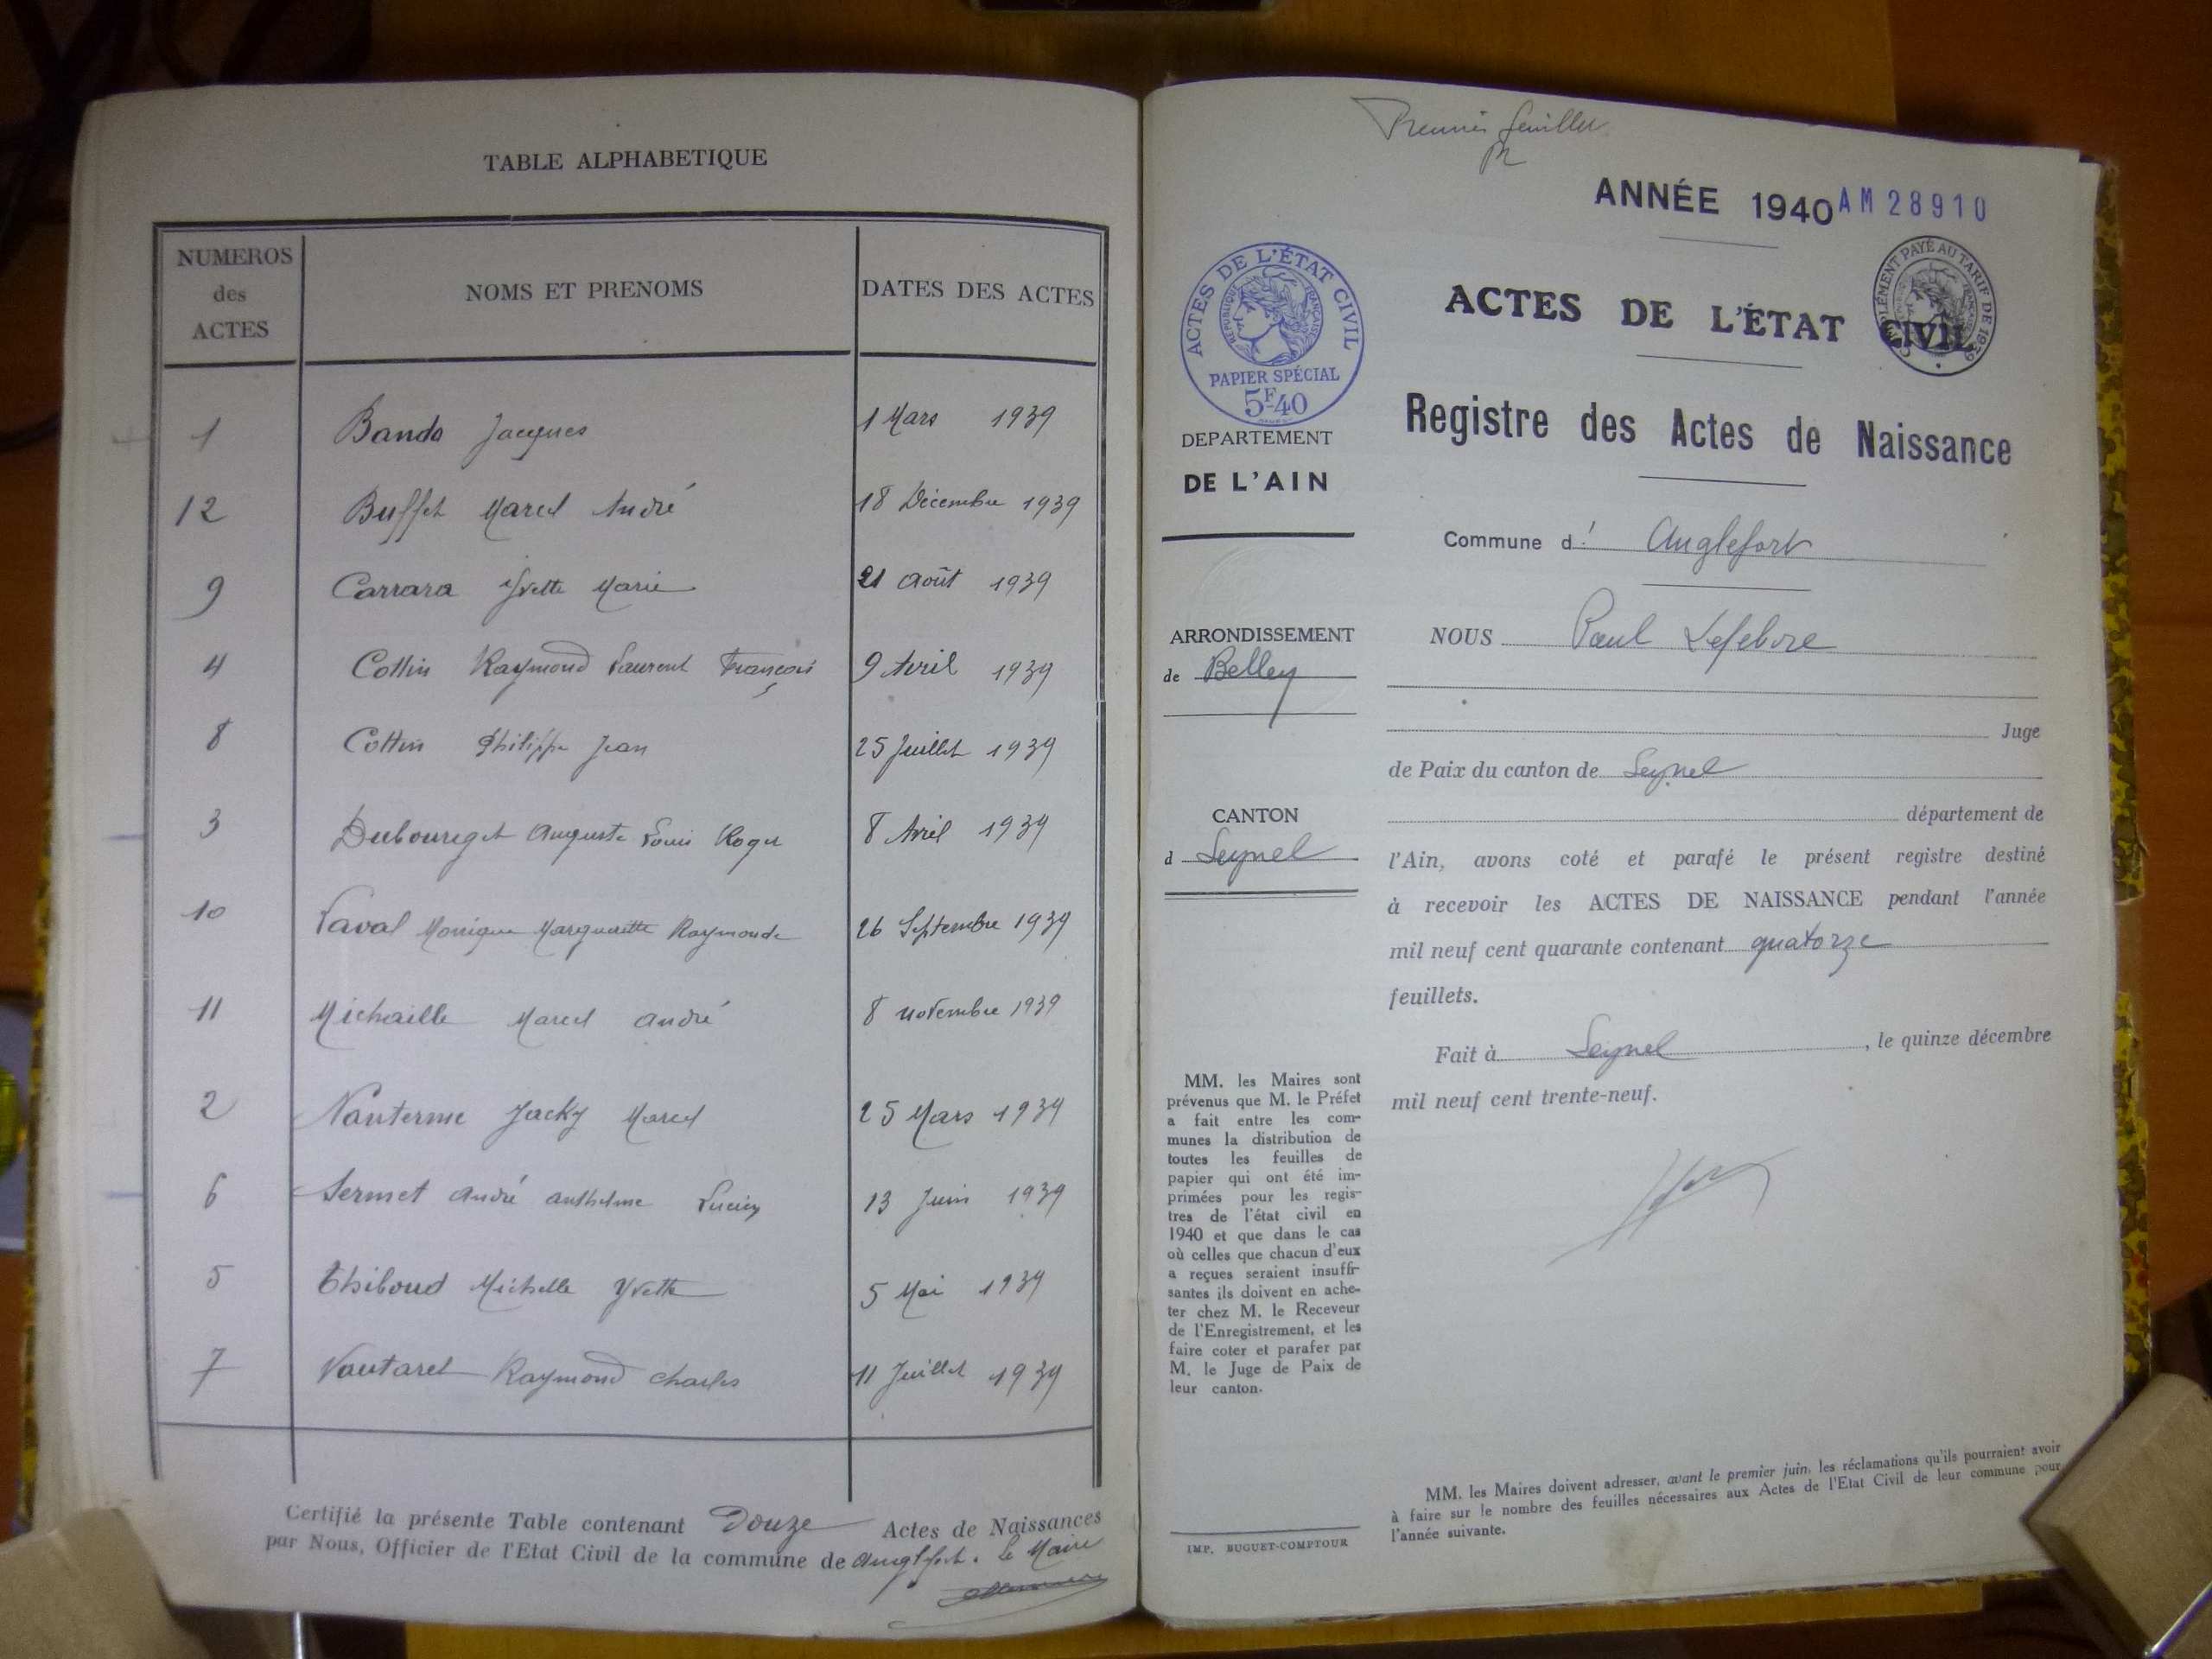 TABLE ALPHABETIQUE
NUMEROS des ACTES NOMS ET PRENOMS DATES DES ACTES
1 Banda Jacques 1 Mars 1939
12 Buffet Marcel André 18 Décembre 1939
9 Carrara Yvette Marie 21 Août 1939
4 Cottin Raymond Laurent François 9 Avril 1939
8 Cottin Philippe Jean 25 Juillet 1939
3 Dubourget Auguste Louis Roger 8 Avril 1939
10 Laval Monique Marguerite Raymonde 26 Septembre 1939
11 Michaille Marcel André 8 novembre 1939
2 Nanterme Jacky Marcel 25 Mars 1939
6 Sermet André anthelme Lucien 13 Juin 1939
5 Thiboud Michelle Yvette 5 Mai 1939
7 Vautaret Raymond Charles 11 Juillet 1939
Certifié la présente Table contenant Douze Actes de Naissances
par Nous, Officier de l'Etat Civil de la commune de Anglefort. Le Maire
Premier feuillet
ANNÉE 1940 AM 28910
ACTES DE L'ÉTAT CIVIL
RÉPUBLIQUE FRANÇAISE
PAPIER SPÉCIAL
5F40
COMPLÉMENT PAYÉ AU TARIF DE 1939
ACTES DE L'ÉTAT CIVIL
Registre des Actes de Naissance
DEPARTEMENT
DE L'AIN
Commune d' Anglefort
ARRONDISSEMENT
de Belley
CANTON
d Seyssel
NOUS Paul Lefebvre
Juge
de Paix du canton de Seyssel
département de
l'Ain, avons coté et parafé le présent registre destiné
à recevoir les ACTES DE NAISSANCE pendant l'année
mil neuf cent quarante contenant quatorze
feuillets.
Fait à Seyssel, le quinze décembre
mil neuf cent trente-neuf.
MM. les Maires sont
prévenus que M. le Préfet
a fait entre les com-
munes la distribution de
toutes les feuilles de
papier qui ont été im-
primées pour les regis-
tres de l'état civil en
1940 et que dans le cas
où celles que chacun d'eux
a reçues seraient insuffi-
santes ils doivent en ache-
ter chez M. le Receveur
de l'Enregistrement, et les
faire coter et parafer par
M. le Juge de Paix de
leur canton.
IMP. BUGUET-COMPTOUR
MM. les Maires doivent adresser, avant le premier juin, les réclamations qu'ils pourraient avoir
à faire sur le nombre des feuilles nécessaires aux Actes de l'Etat Civil de leur commune pour
l'année suivante.